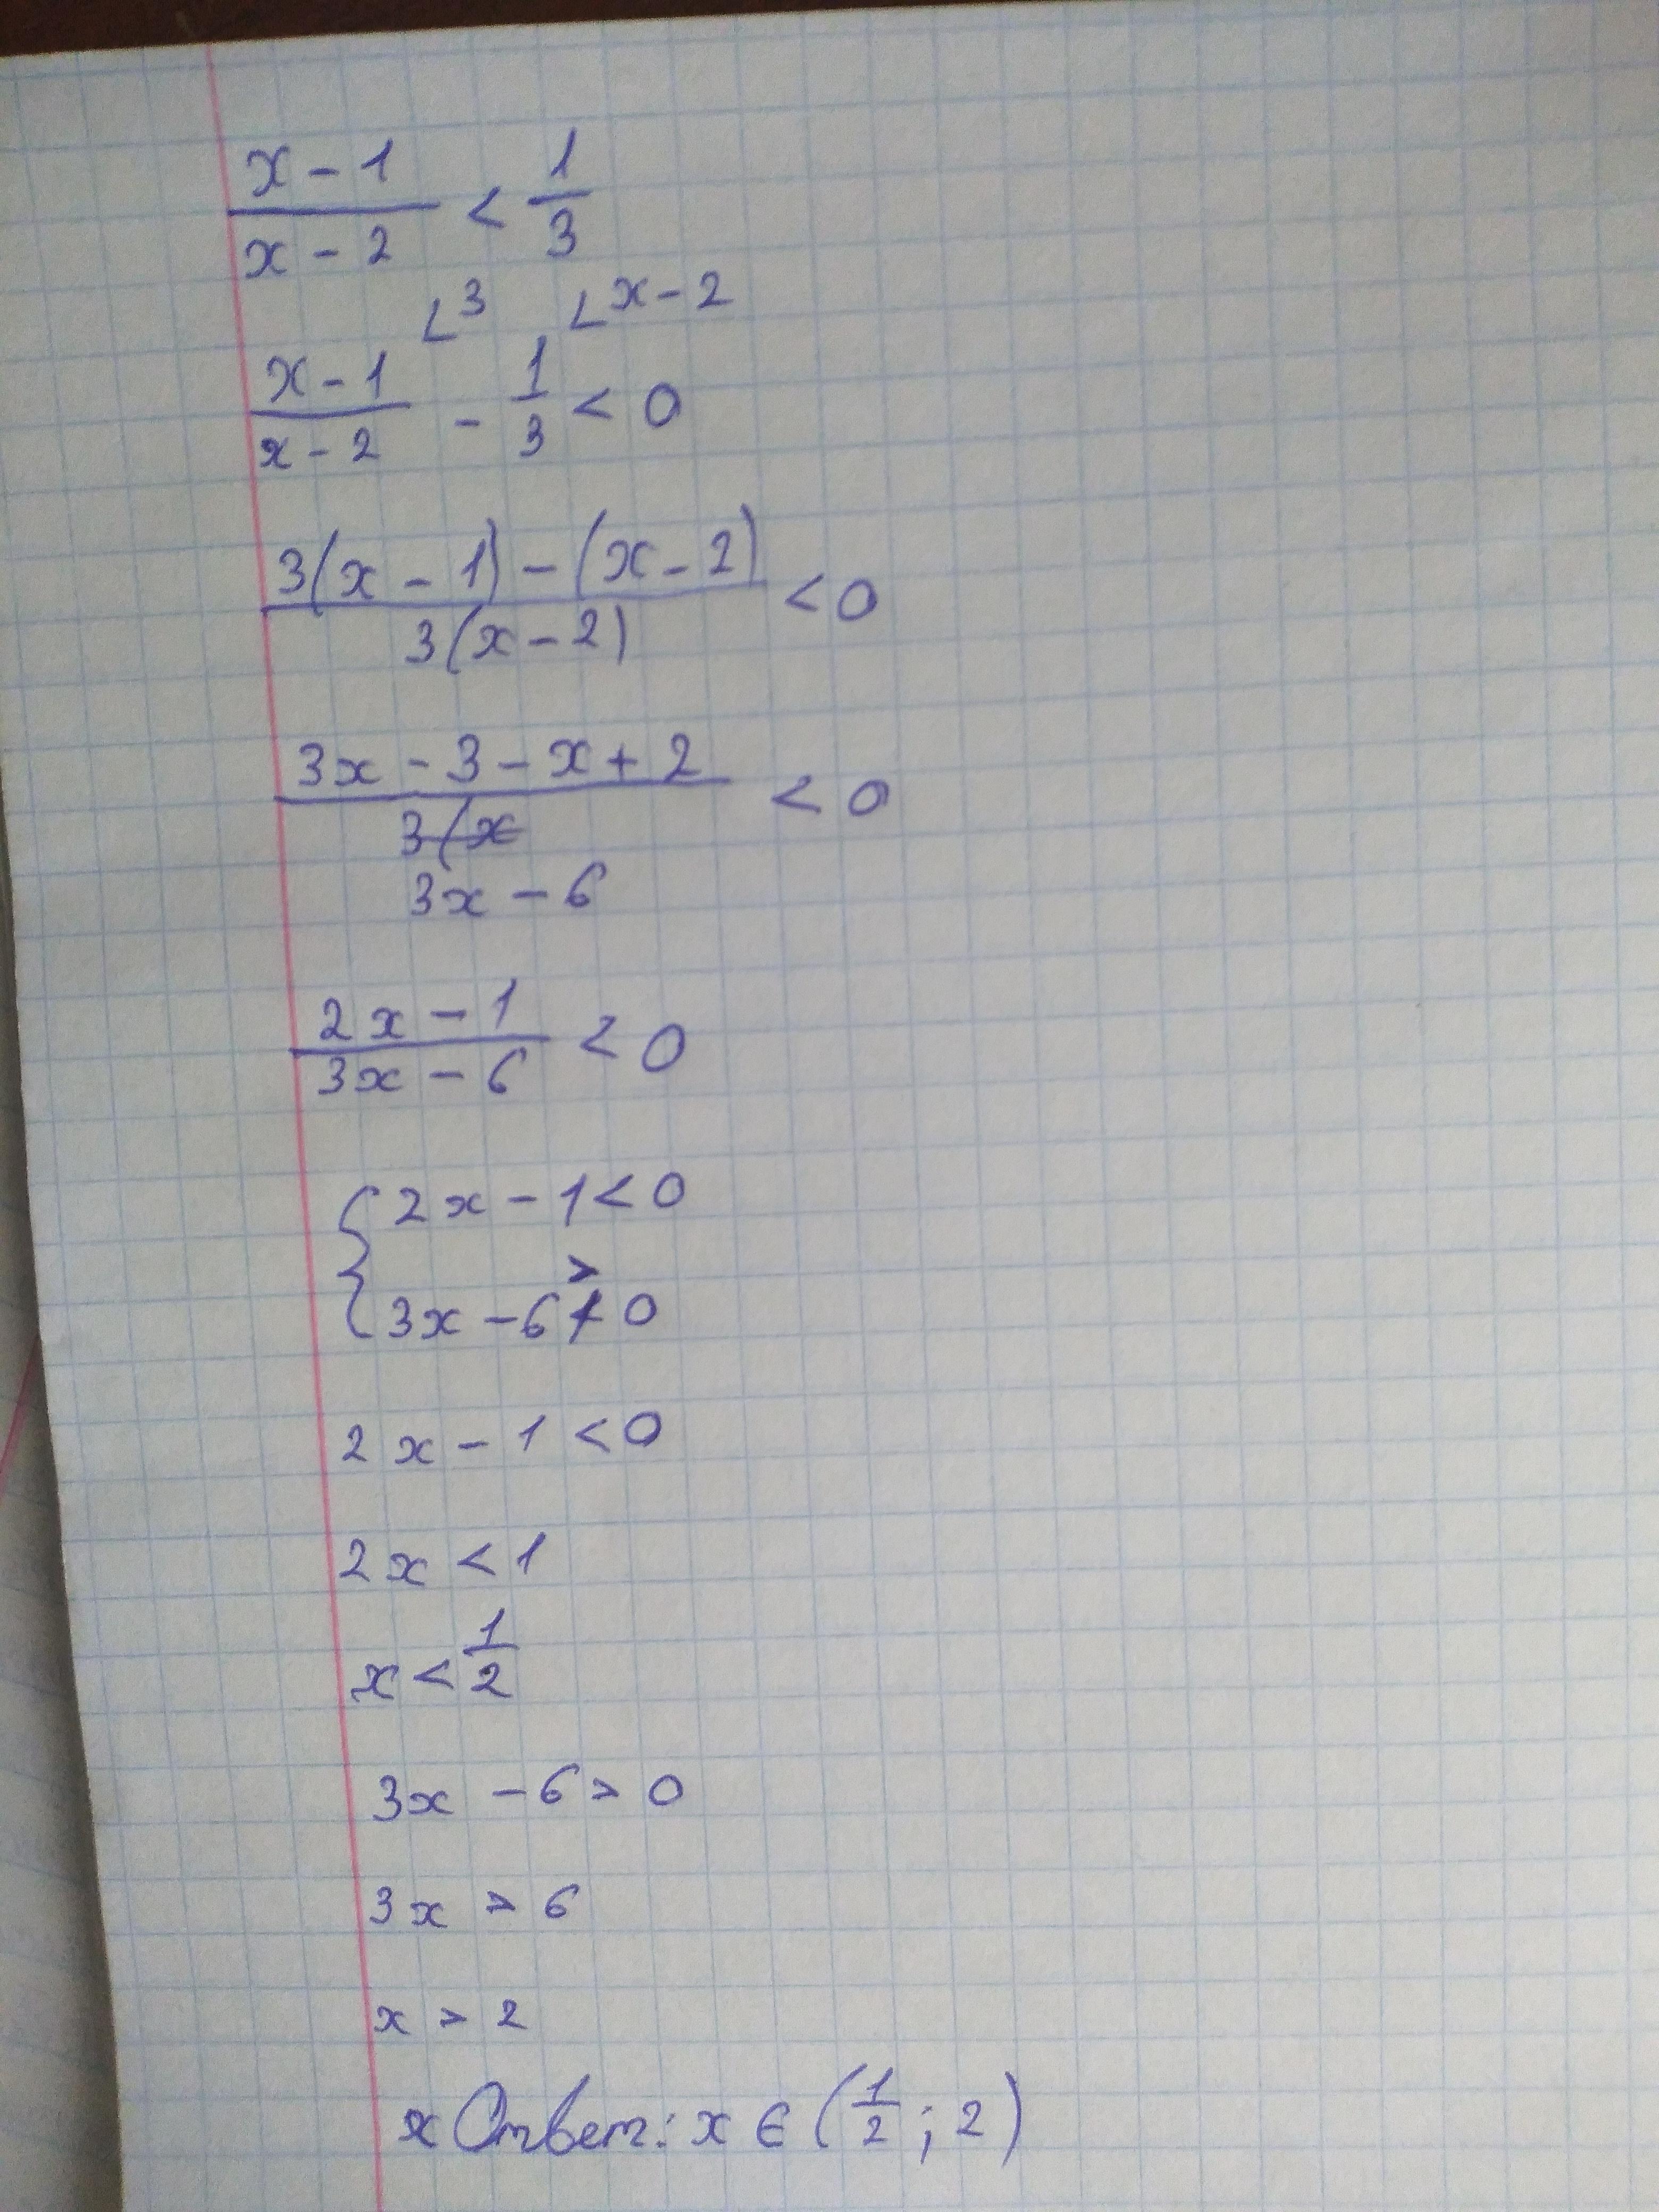 (x - 1)/(x - 2) < 1/3
∠3 ∠x - 2
(x - 1)/(x - 2) - 1/3 < 0
(3(x - 1) - (x - 2))/(3(x - 2)) < 0
(3x - 3 - x + 2)/(3x - 6) < 0
3(x
(2x - 1)/(3x - 6) < 0
{ 2x - 1 < 0
>
3x - 6 < 0
2x - 1 < 0
2x < 1
x < 1/2
3x - 6 > 0
3x > 6
x > 2
x Ответ: x ∈ (1/2 ; 2)